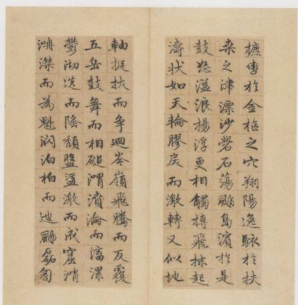 攄轡於金樞之穴翔陽逸駭於扶
桑之津漂沙礐石蕩䬍島濱於是
鼓怒溢浪揚浮更相觸搏飛沫起
濤狀如天輪膠戾而激轉又似地
軸挺拔而爭迴岑嶺飛騰而反覆
五岳鼓舞而相磓渭濆淪而滀漯
鬱沏迭而隆頹盤盓激而成窟
滐而為魁泊柏而迆颺磊匒